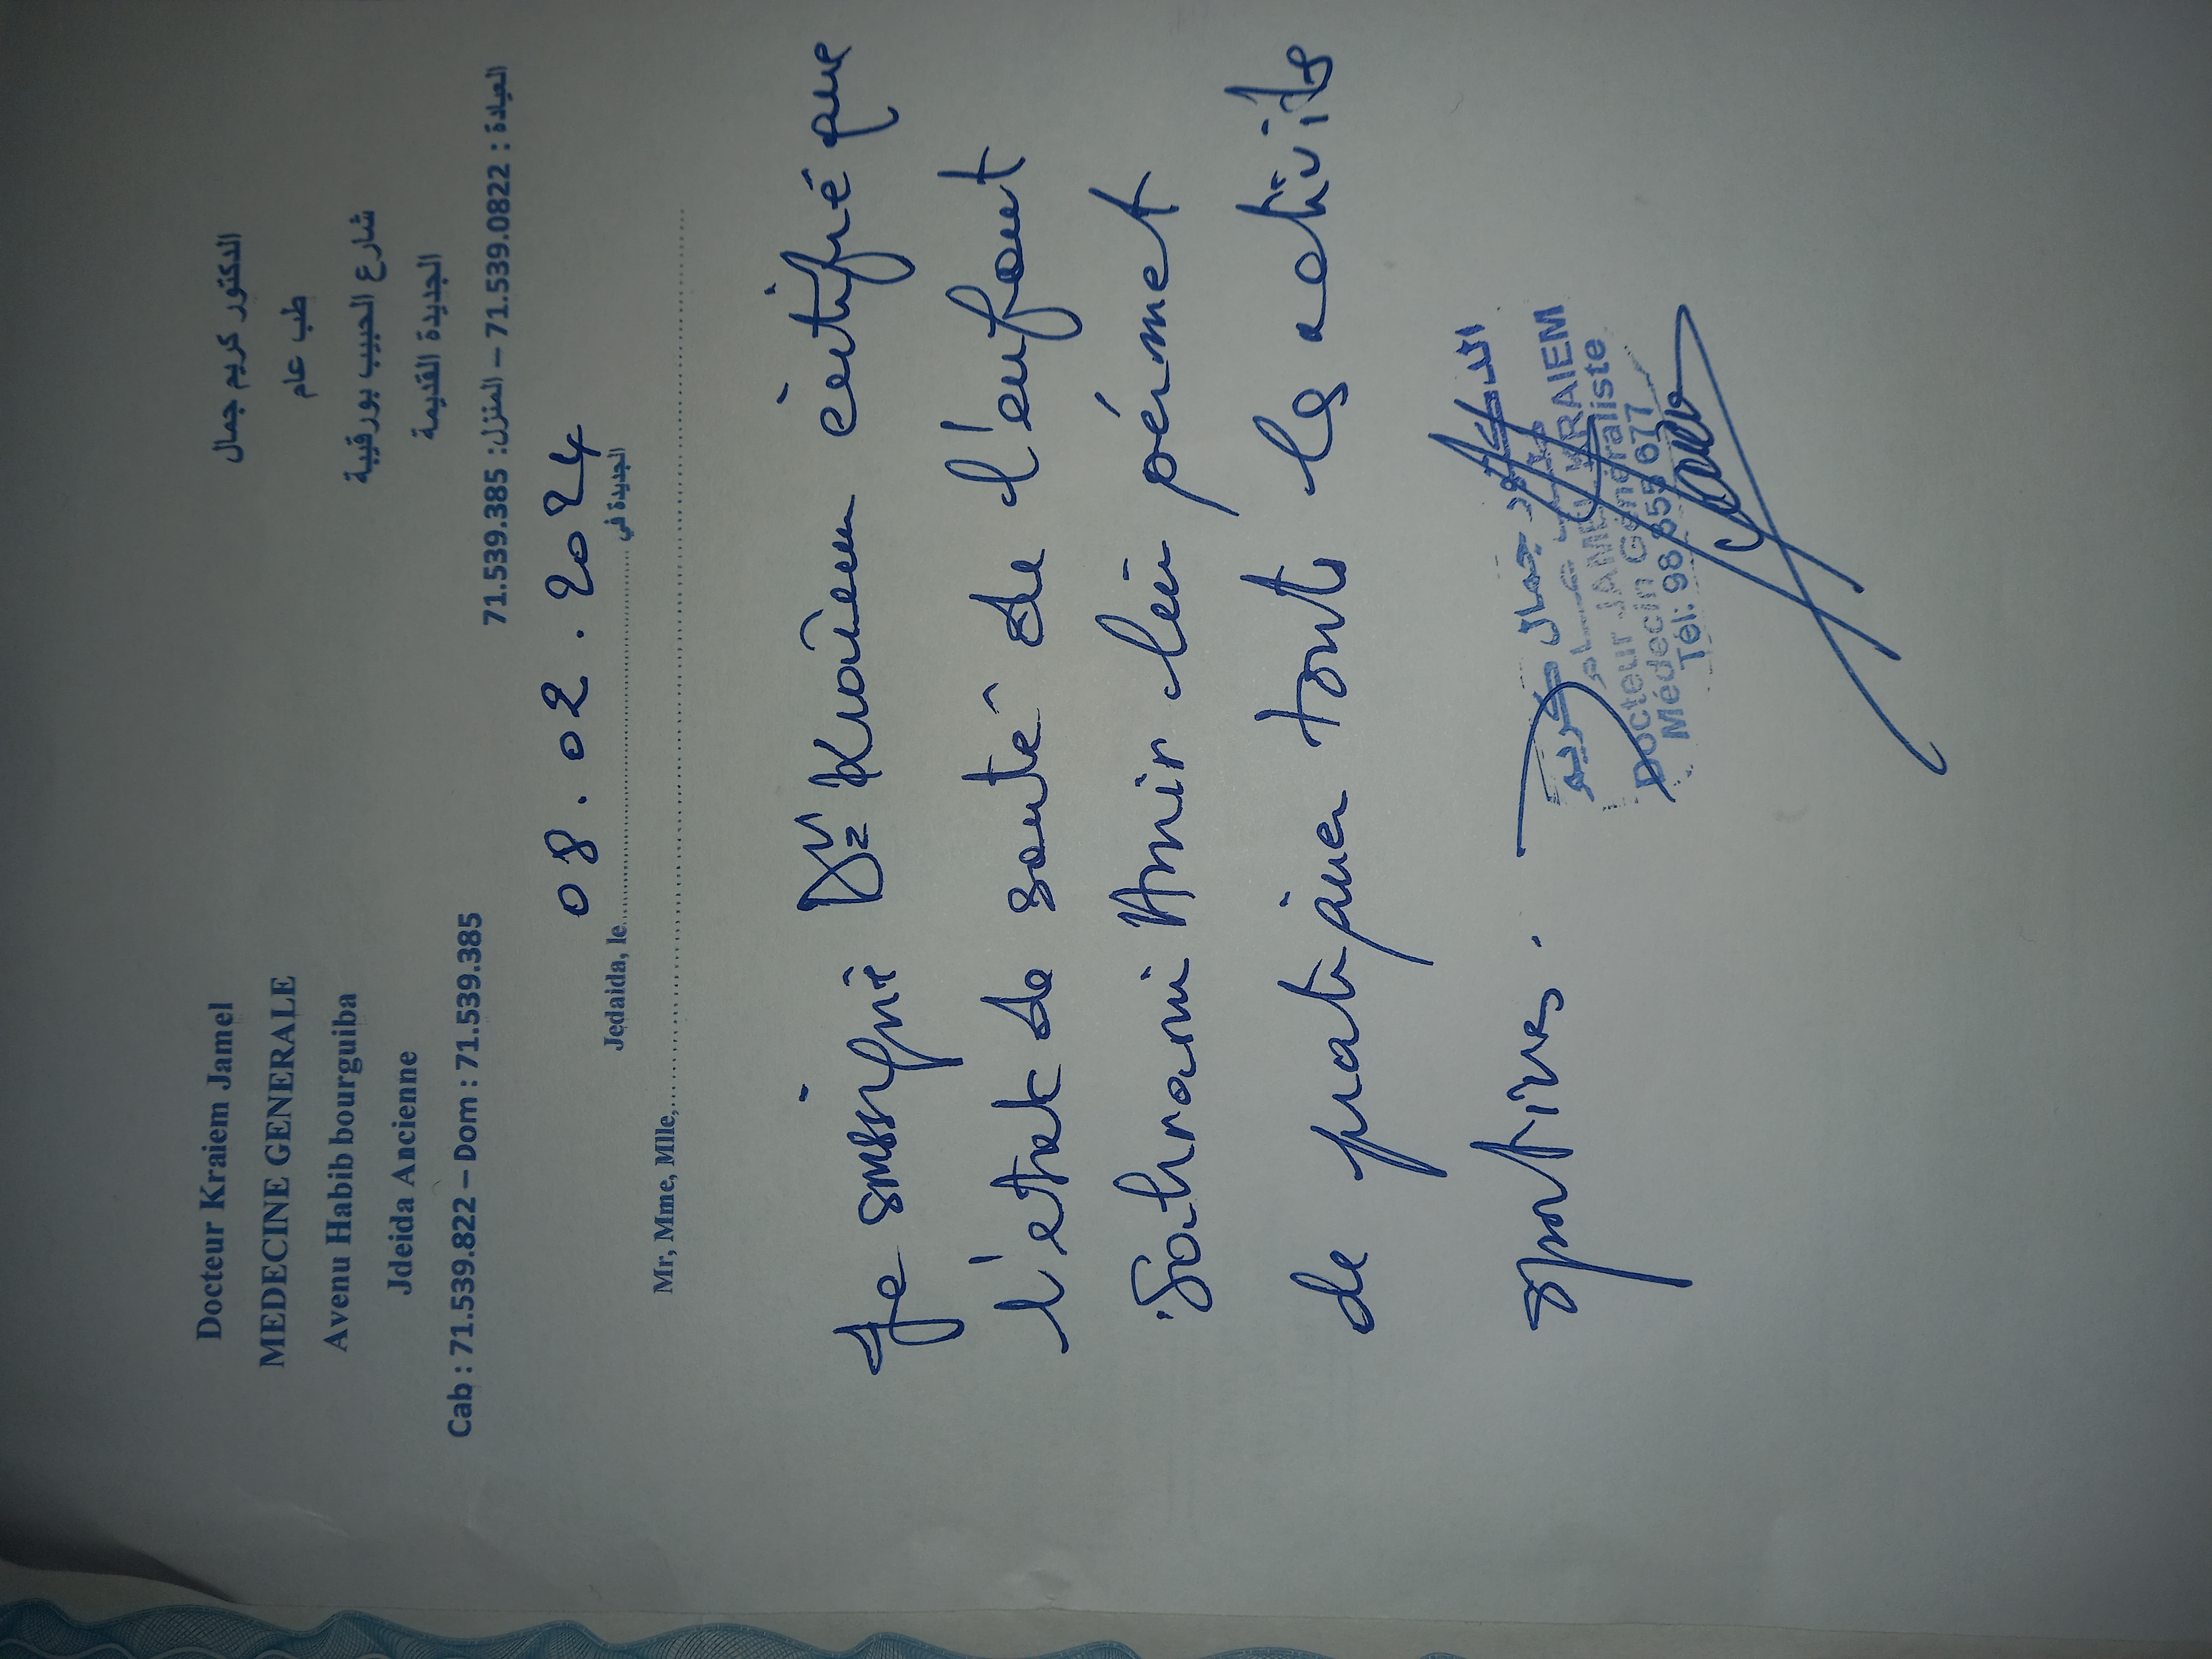 Docteur Kraiem Jamel
الدكتور كريم جمال
MEDECINE GENERALE
طب عام
Avenu Habib bourguiba
شارع الحبيب بورقيبة
Jdeida Ancienne
الجديدة القديمة
Cab : 71.539.822 – Dom : 71.539.385
العيادة : 71.539.0822 – المنزل: 71.539.385
08.02.2024
Jedaida, le
الجديدة في
Mr, Mme, Mlle,
Je sussigné Dr Kraiem certifié que
l'etat de santé de l'enfant
Sahraoui Amir lui pérmet
de pratiquer touts les activités
sportives.
الدكتور جمال كريم
Docteur JAMEL KRAIEM
Médecin Généraliste
Tél: 98 355 677